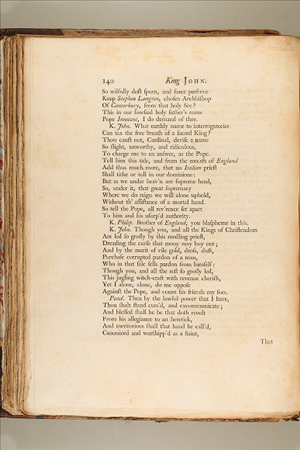 140 King JOHN.
So wilfully dost spurn, and force perforce
Keep Stephen Langton, chosen Archbishop
Of Canterbury, from that holy See?
This in our foresaid holy father's name
Pope Innocent, I do demand of thee.
K. John. What earthly name to interrogatories
Can tax the free breath of a sacred King?
Thou canst not, Cardinal, devise a name
So slight, unworthy, and ridiculous,
To charge me to an answer, as the Pope.
Tell him this tale, and from the mouth of England
Add thus much more, that no Italian priest
Shall tithe or toll in our dominions:
But as we under heav'n are supreme head,
So, under it, that great supremacy
Where we do reign we will alone uphold,
Without th' assistance of a mortal hand.
So tell the Pope, all rev'rence set apart
To him and his usurp'd authority.
K. Philip. Brother of England, you blaspheme in this.
K. John. Though you, and all the Kings of Christendom
Are led so grosly by this medling priest,
Dreading the curse that mony may buy out;
And by the merit of vile gold, dross, dust,
Purchase corrupted pardon of a man,
Who in that sale sells pardon from himself:
Though you, and all the rest so grosly led,
This jugling witch-craft with revenue cherish,
Yet I alone, alone, do me oppose
Against the Pope, and count his friends my foes.
Pand. Then by the lawful power that I have,
Thou shalt stand curs'd, and excommunicate;
And blessed shall he be that doth revolt
From his allegiance to an heretick,
And meritorious shall that hand be call'd,
Canonized and worshipp'd as a Saint,
That